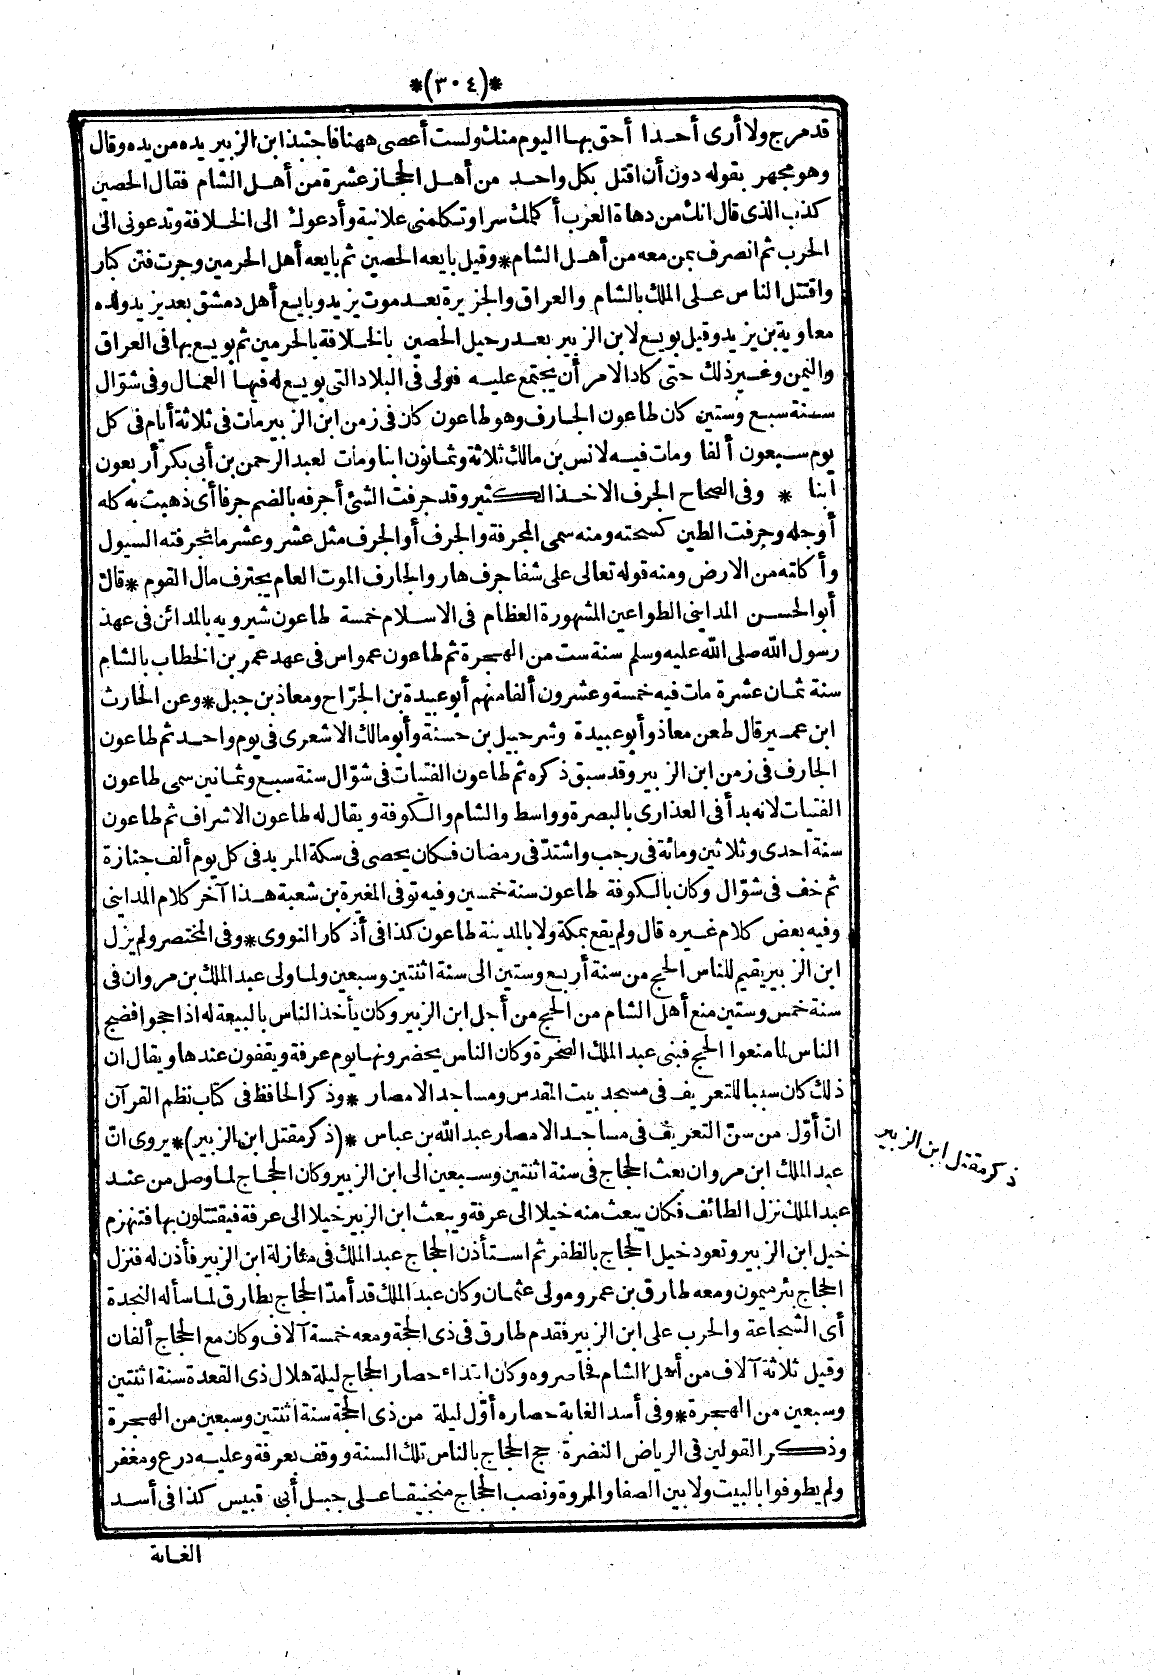 *(٣٠٤)*
قد مرج ولا أرى أحدا أحق بها اليوم منك ولست أعصى ههنا فاجتبذ ابن الزبير يده من يده وقال
وهو يجهر بقوله دون أن اقتل بكل واحد من أهل الحجاز عشرة من أهل الشام فقال الحصين
كذب الذى قال انك من دهاة العرب أكلمك سرا وتكلمنى علانية وأدعوك الى الخلافة وتدعونى الى
الحرب ثم انصرف بمن معه من أهل الشام * وقيل بايعه الحصين ثم بايعه أهل الحرمين وجرت فتن كبار
واقتتل الناس على الملك بالشام والعراق والجزيرة بعد موت يزيد وبايع أهل دمشق بعد يزيد ولده
معاوية بن يزيد وقيل بويع لابن الزبير بعد رحيل الحصين بالخلافة بالحرمين ثم بويع بها فى العراق
واليمن وغير ذلك حتى كاد الامر أن يجتمع عليه فولى فى البلاد التى بويع له فيها العمال وفى شوّال
سنة سبع وستين كان طاعون الجارف وهو طاعون كان فى زمن ابن الزبير مات فى ثلاثة أيام فى كل
يوم سبعون ألفا ومات فيه لانس بن مالك ثلاثة وثمانون ابنا ومات لعبد الرحمن بن أبى بكر أربعون
ابنا * وفى الصحاح الجرف الاخذ الكثير وقد جرفت الشئ أجرفه بالضم جرفا أى ذهبت به كله
أوجله وجرفت الطين كسحته ومنه سمى المجرفة والجرف أو الجرف مثل عشر وعشر ما تجرفته السيول
وأكلته من الارض ومنه قوله تعالى على شفا جرف هار والجارف الموت العام يجترف مال القوم * قال
أبو الحسن المداينى الطواعين المشهورة العظام فى الاسلام خمسة طاعون شيرويه بالمدائن فى عهد
رسول الله صلى الله عليه وسلم سنة ست من الهجرة ثم طاعون عمواس فى عهد عمر بن الخطاب بالشام
سنة ثمان عشرة مات فيه خمسة وعشرون ألفا منهم أبو عبيدة بن الجرّاح ومعاذ بن جبل * وعن الحارث
ابن عمير قال طعن معاذ وأبو عبيدة وشرحبيل بن حسنة وأبو مالك الاشعرى فى يوم واحد ثم طاعون
الجارف فى زمن ابن الزبير وقد سبق ذكره ثم طاعون الفتيات فى شوّال سنة سبع وثمانين سمى طاعون
الفتيات لانه بدأ فى العذارى بالبصرة وواسط والشام والكوفة ويقال له طاعون الاشراف ثم طاعون
سنة احدى وثلاثين ومائة فى رجب واشتدّ فى رمضان فكان يحصى فى سكة المربد فى كل يوم ألف جنازة
ثم خف فى شوّال وكان بالكوفة طاعون سنة خمسين وفيه توفى المغيرة بن شعبة هذا آخر كلام المداينى
وفيه بعض كلام غيره قال ولم يقع بمكة ولا بالمدينة طاعون كذا فى أذكار النووى * وفى المختصر ولم يزل
ابن الزبير يقيم للناس الحج من سنة أربع وستين الى سنة اثنتين وسبعين ولما ولى عبد الملك بن مروان فى
سنة خمس وستين منع أهل الشام من الحج من أجل ابن الزبير وكان يأخذ الناس بالبيعة له اذا حجوا فضج
الناس لما منعوا الحج فبنى عبد الملك الصخرة وكان الناس يحضرونها يوم عرفة ويقفون عندها ويقال ان
ذلك كان سببا للتعريف فى مسجد بيت المقدس ومساجد الامصار * وذكر الحافظ فى كتاب نظم القرآن
انّ أوّل من سنّ التعريف فى مساجد الامصار عبد الله بن عباس *(ذكر مقتل ابن الزبير)* يروى انّ
ذكر مقتل ابن الزبير
عبد الملك ابن مروان بعث الحجاج فى سنة اثنتين وسبعين الى ابن الزبير وكان الحجاج لما وصل من عند
عبد الملك نزل الطائف فكان يبعث منه خيلا الى عرفة ويبعث ابن الزبير خيلا الى عرفة فيقتتلون بها فتنهزم
خيل ابن الزبير وتعود خيل الحجاج بالظفر ثم استأذن الحجاج عبد الملك فى منازلة ابن الزبير فأذن له فنزل
الحجاج بئر ميمون ومعه طارق بن عمرو مولى عثمان وكان عبد الملك قد أمدّ الحجاج بطارق لما سأله النجدة
أى الشجاعة والحرب على ابن الزبير فقدم طارق فى ذى الحجة ومعه خمسة آلاف وكان مع الحجاج ألفان
وقيل ثلاثة آلاف من أهل الشام فحاصروه وكان ابتداء حصار الحجاج ليلة هلال ذى القعدة سنة اثنتين
وسبعين من الهجرة * وفى أسد الغابة حصاره أوّل ليلة من ذى الحجة سنة اثنتين وسبعين من الهجرة
وذكر القولين فى الرياض النضرة حج الحجاج بالناس تلك السنة ووقف بعرفة وعليه درع ومغفر
ولم يطوفوا بالبيت ولا بين الصفا والمروة ونصب الحجاج منجنيقا على جبل أبى قبيس كذا فى أسد
الغابة